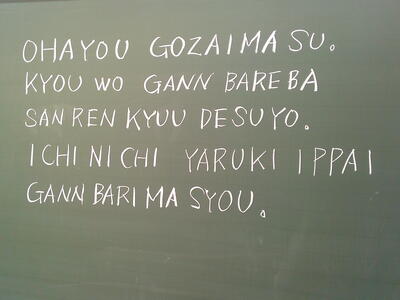 OHAYOU GOZAIMASU.
KYOU WO GANN BAREBA
SAN REN KYUU DESUYO.
ICHI NI CHI YARUKI IPPAI
GANN BARIMA SYOU.